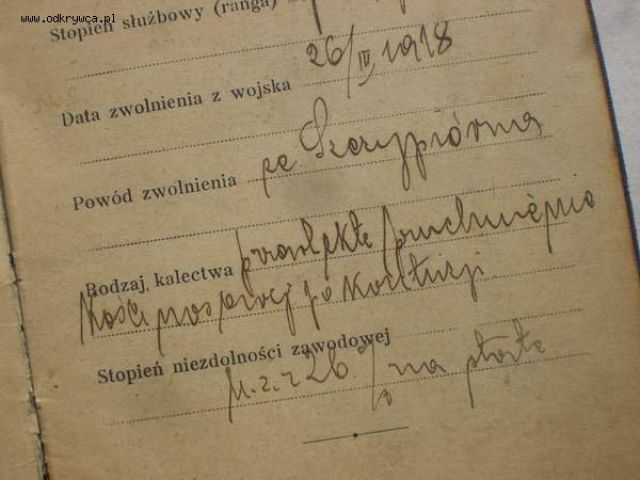 www.odkrywca.pl
Stopień służbowy (ranga)
Data zwolnienia z wojska 26/IV 1918
Powód zwolnienia ze Szczypiórna
Rodzaj kalectwa przewlekłe
kości po kontuzji
Stopień niezdolności zawodowej
26 % na płatę